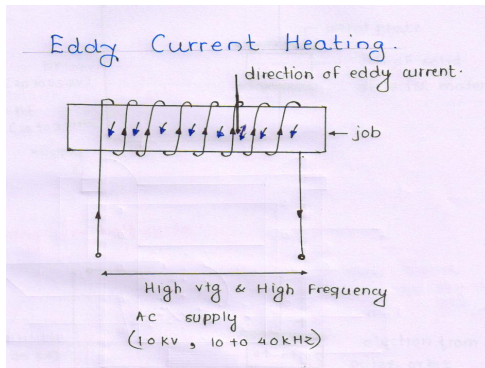 Eddy Current Heating.
direction of eddy current.
job
High vtg & High Frequency
AC supply
(10 KV, 10 to 40 KHz)